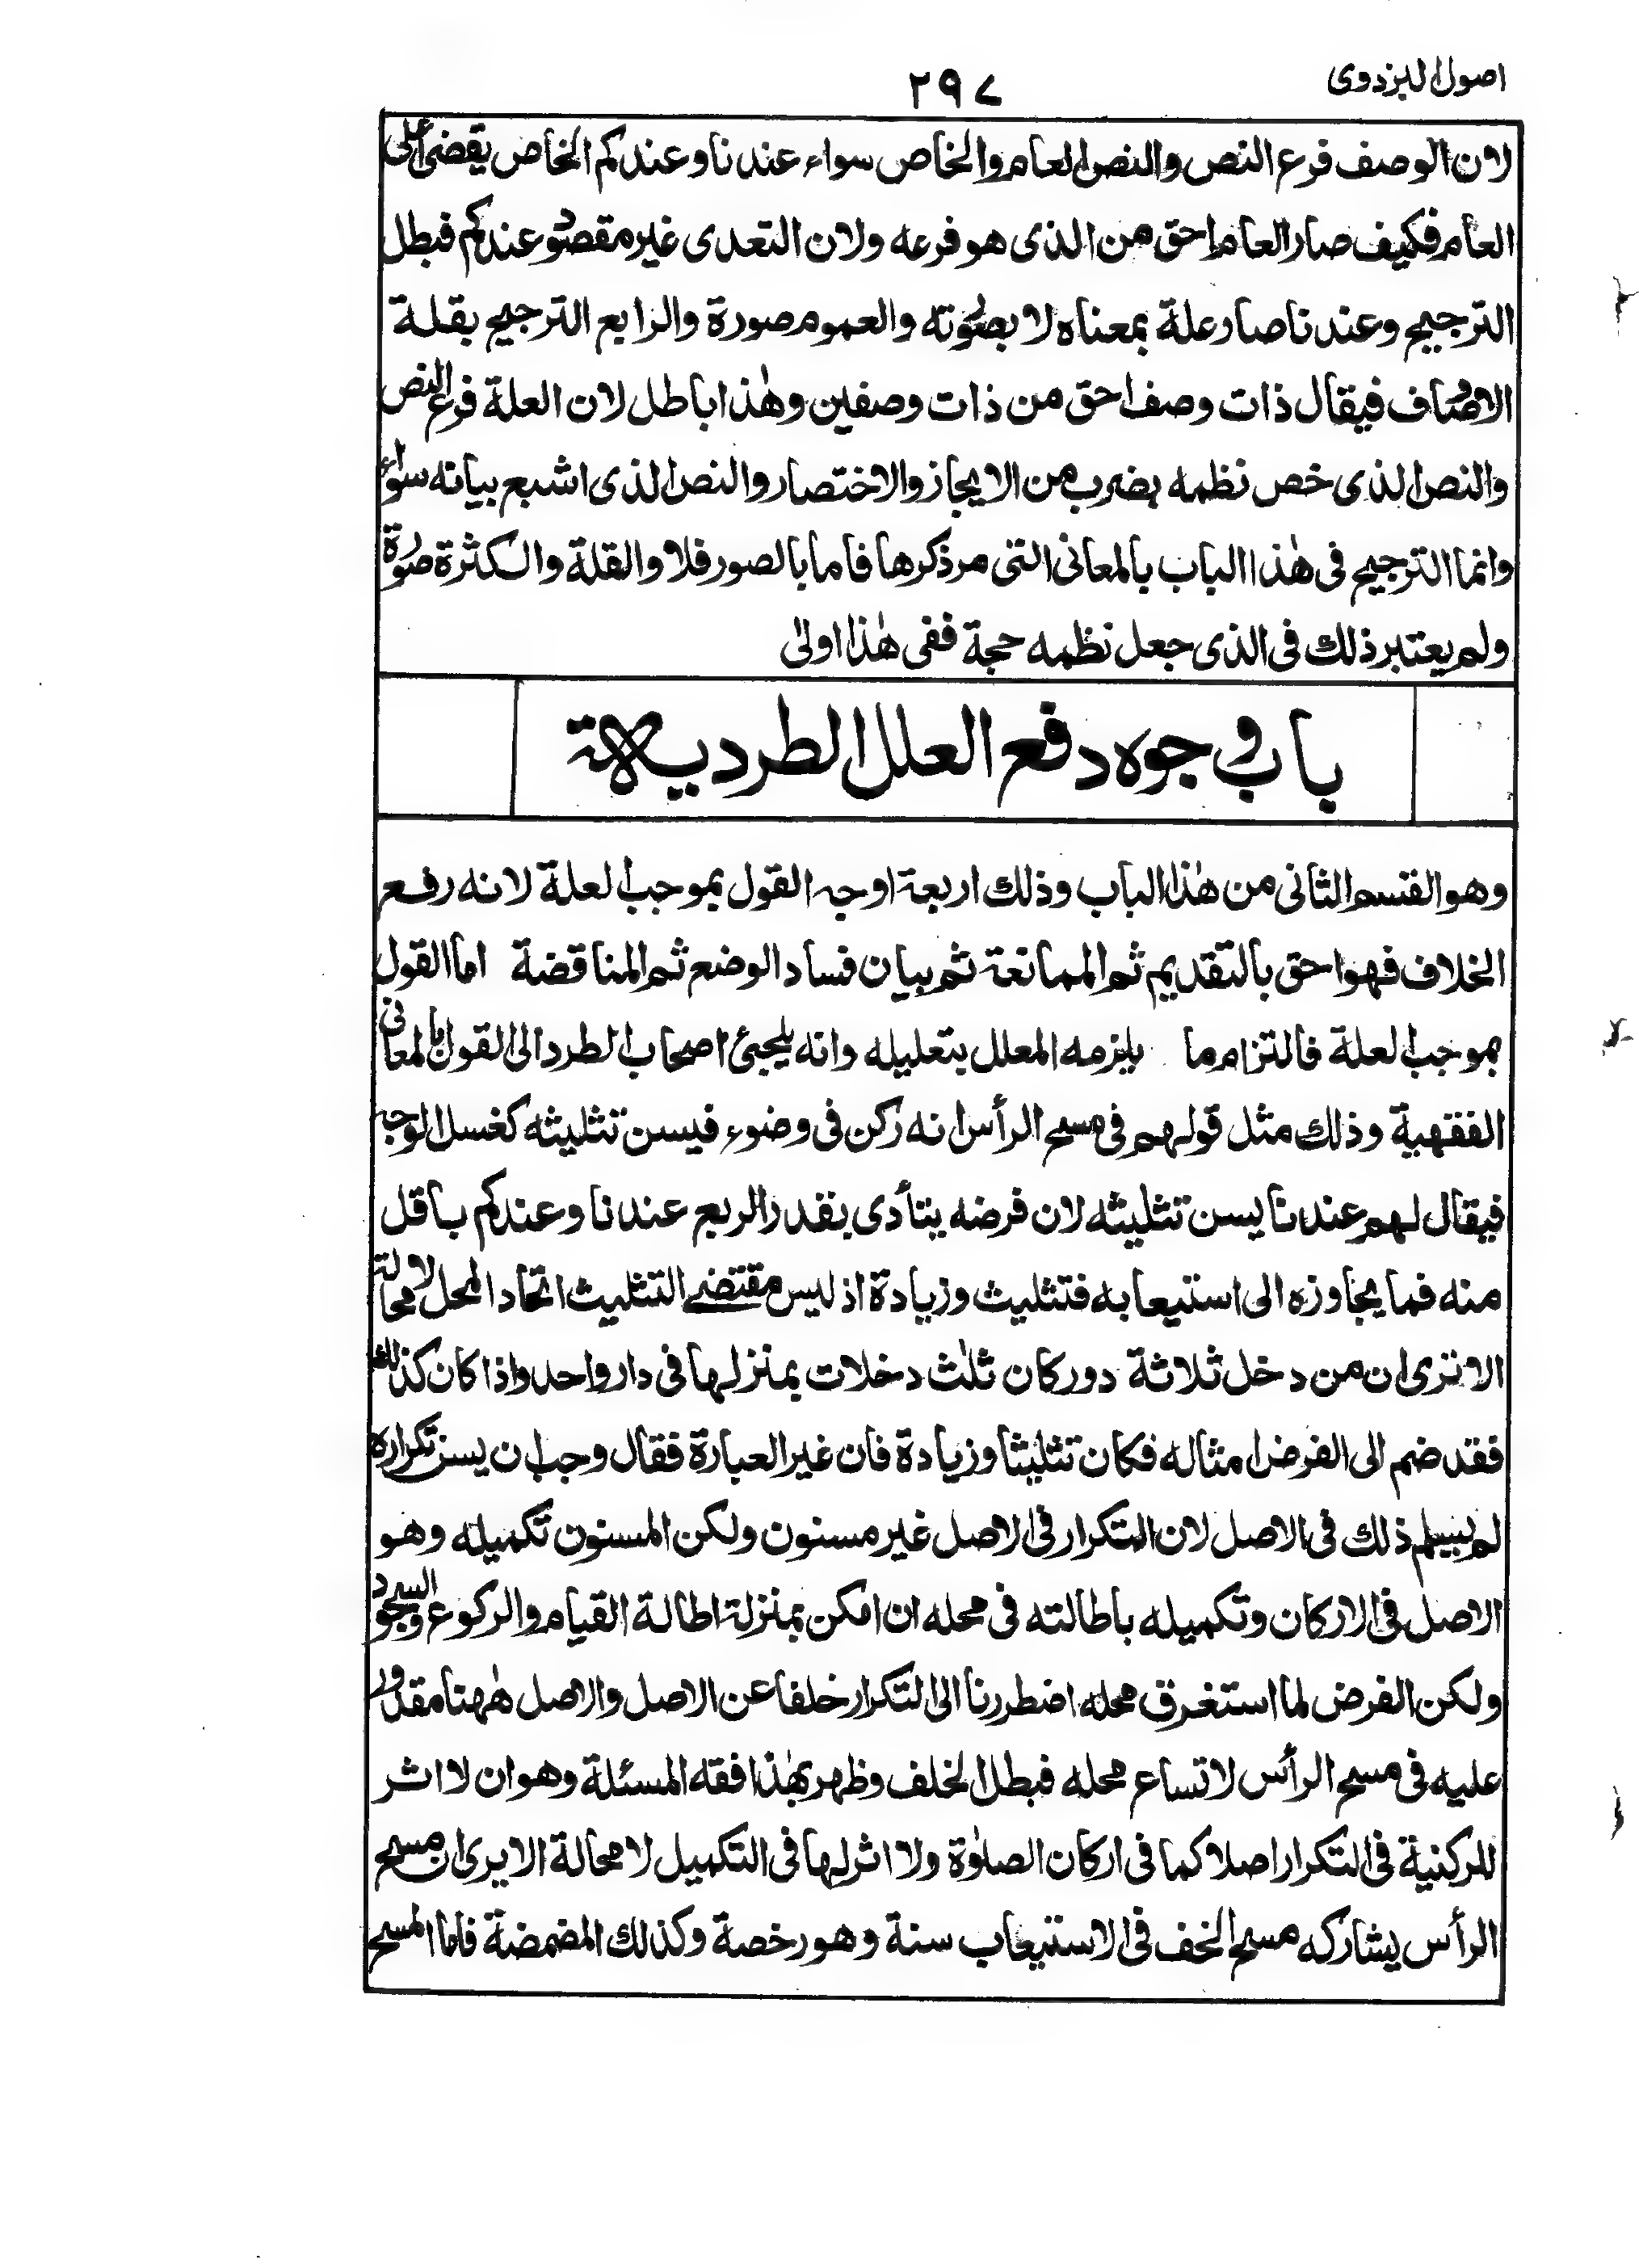 اصول البزدوى
٢٩٧
لان الوصف فرع النص والنص العام والخاص سواء عندنا وعندكم الخاص يقضى على
العام فكيف صار العام احق من الذى هو فرعه ولان التعدى غير مقصود عندكم فبطل
الترجيح وعندنا صار علة بمعناه لا بصورته والعموم صورة والرابع الترجيح بقلة
الاوصاف فيقال ذات وصف احق من ذات وصفين وهٰذا باطل لان العلة فرع النص
والنص الذى خص نظمه بضرب من الايجاز والاختصار والنص الذى اشبع بيانه سواء
وانما الترجيح فى هٰذا الباب بالمعانى التى مر ذكرها فاما بالصور فلا والقلة والكثرة صورة
ولم يعتبر ذلك فى الذى جعل نظمه حجة ففى هٰذا اولىٰ
باب وجوه دفع العلل الطردية
وهو القسم الثانى من هٰذا الباب وذلك اربعة اوجه القول بموجب العلة لانه رفع
الخلاف فهو احق بالتقديم ثم الممانعة ثم بيان فساد الوضع ثم المناقضة اما القول
بموجب العلة فالتزام ما يلزمه المعلل بتعليله وانه يلجئ اصحاب الطرد الى القول بالمعانى
الفقهية وذلك مثل قولهم فى مسح الرأس انه ركن فى وضوء فيسن تثليثه كغسل الوجه
فيقال لهم عندنا يسن تثليثه لان فرضه يتأدى بقدر الربع عندنا وعندكم باقل
منه فما يجاوزه الى استيعابه فتثليث وزيادة اذ ليس مقتضى التثليث اتحاد المحل لا محالة
الا ترى ان من دخل ثلاثة دور كان ثلٰث دخلات بمنزلها فى دار واحد واذا كان كذلك
فقد ضم الى الفرض امثاله فكان تثليثا وزيادة فان غير العبارة فقال وجب ان يسن تكراره
لم يسلم ذلك فى الاصل لان التكرار فى الاصل غير مسنون ولكن المسنون تكميله وهو
الاصل فى الاركان وتكميله باطالته فى محله ان امكن بمنزلة اطالة القيام والركوع والسجود
ولكن الفرض لما استغرق محله اضطررنا الى التكرار خلفا عن الاصل والاصل هٰهنا مقدور
عليه فى مسح الرأس لاتساع محله فبطل الخلف وظهر بهٰذا فقه المسئلة وهو ان لا اثر
للركنية فى التكرار اصلا كما فى اركان الصلوٰة ولا اثر لها فى التكميل لا محالة الا يرى ان مسح
الرأس يشاركه مسح الخف فى الاستيعاب سنة وهو رخصة وكذلك المضمضة فاما المسح